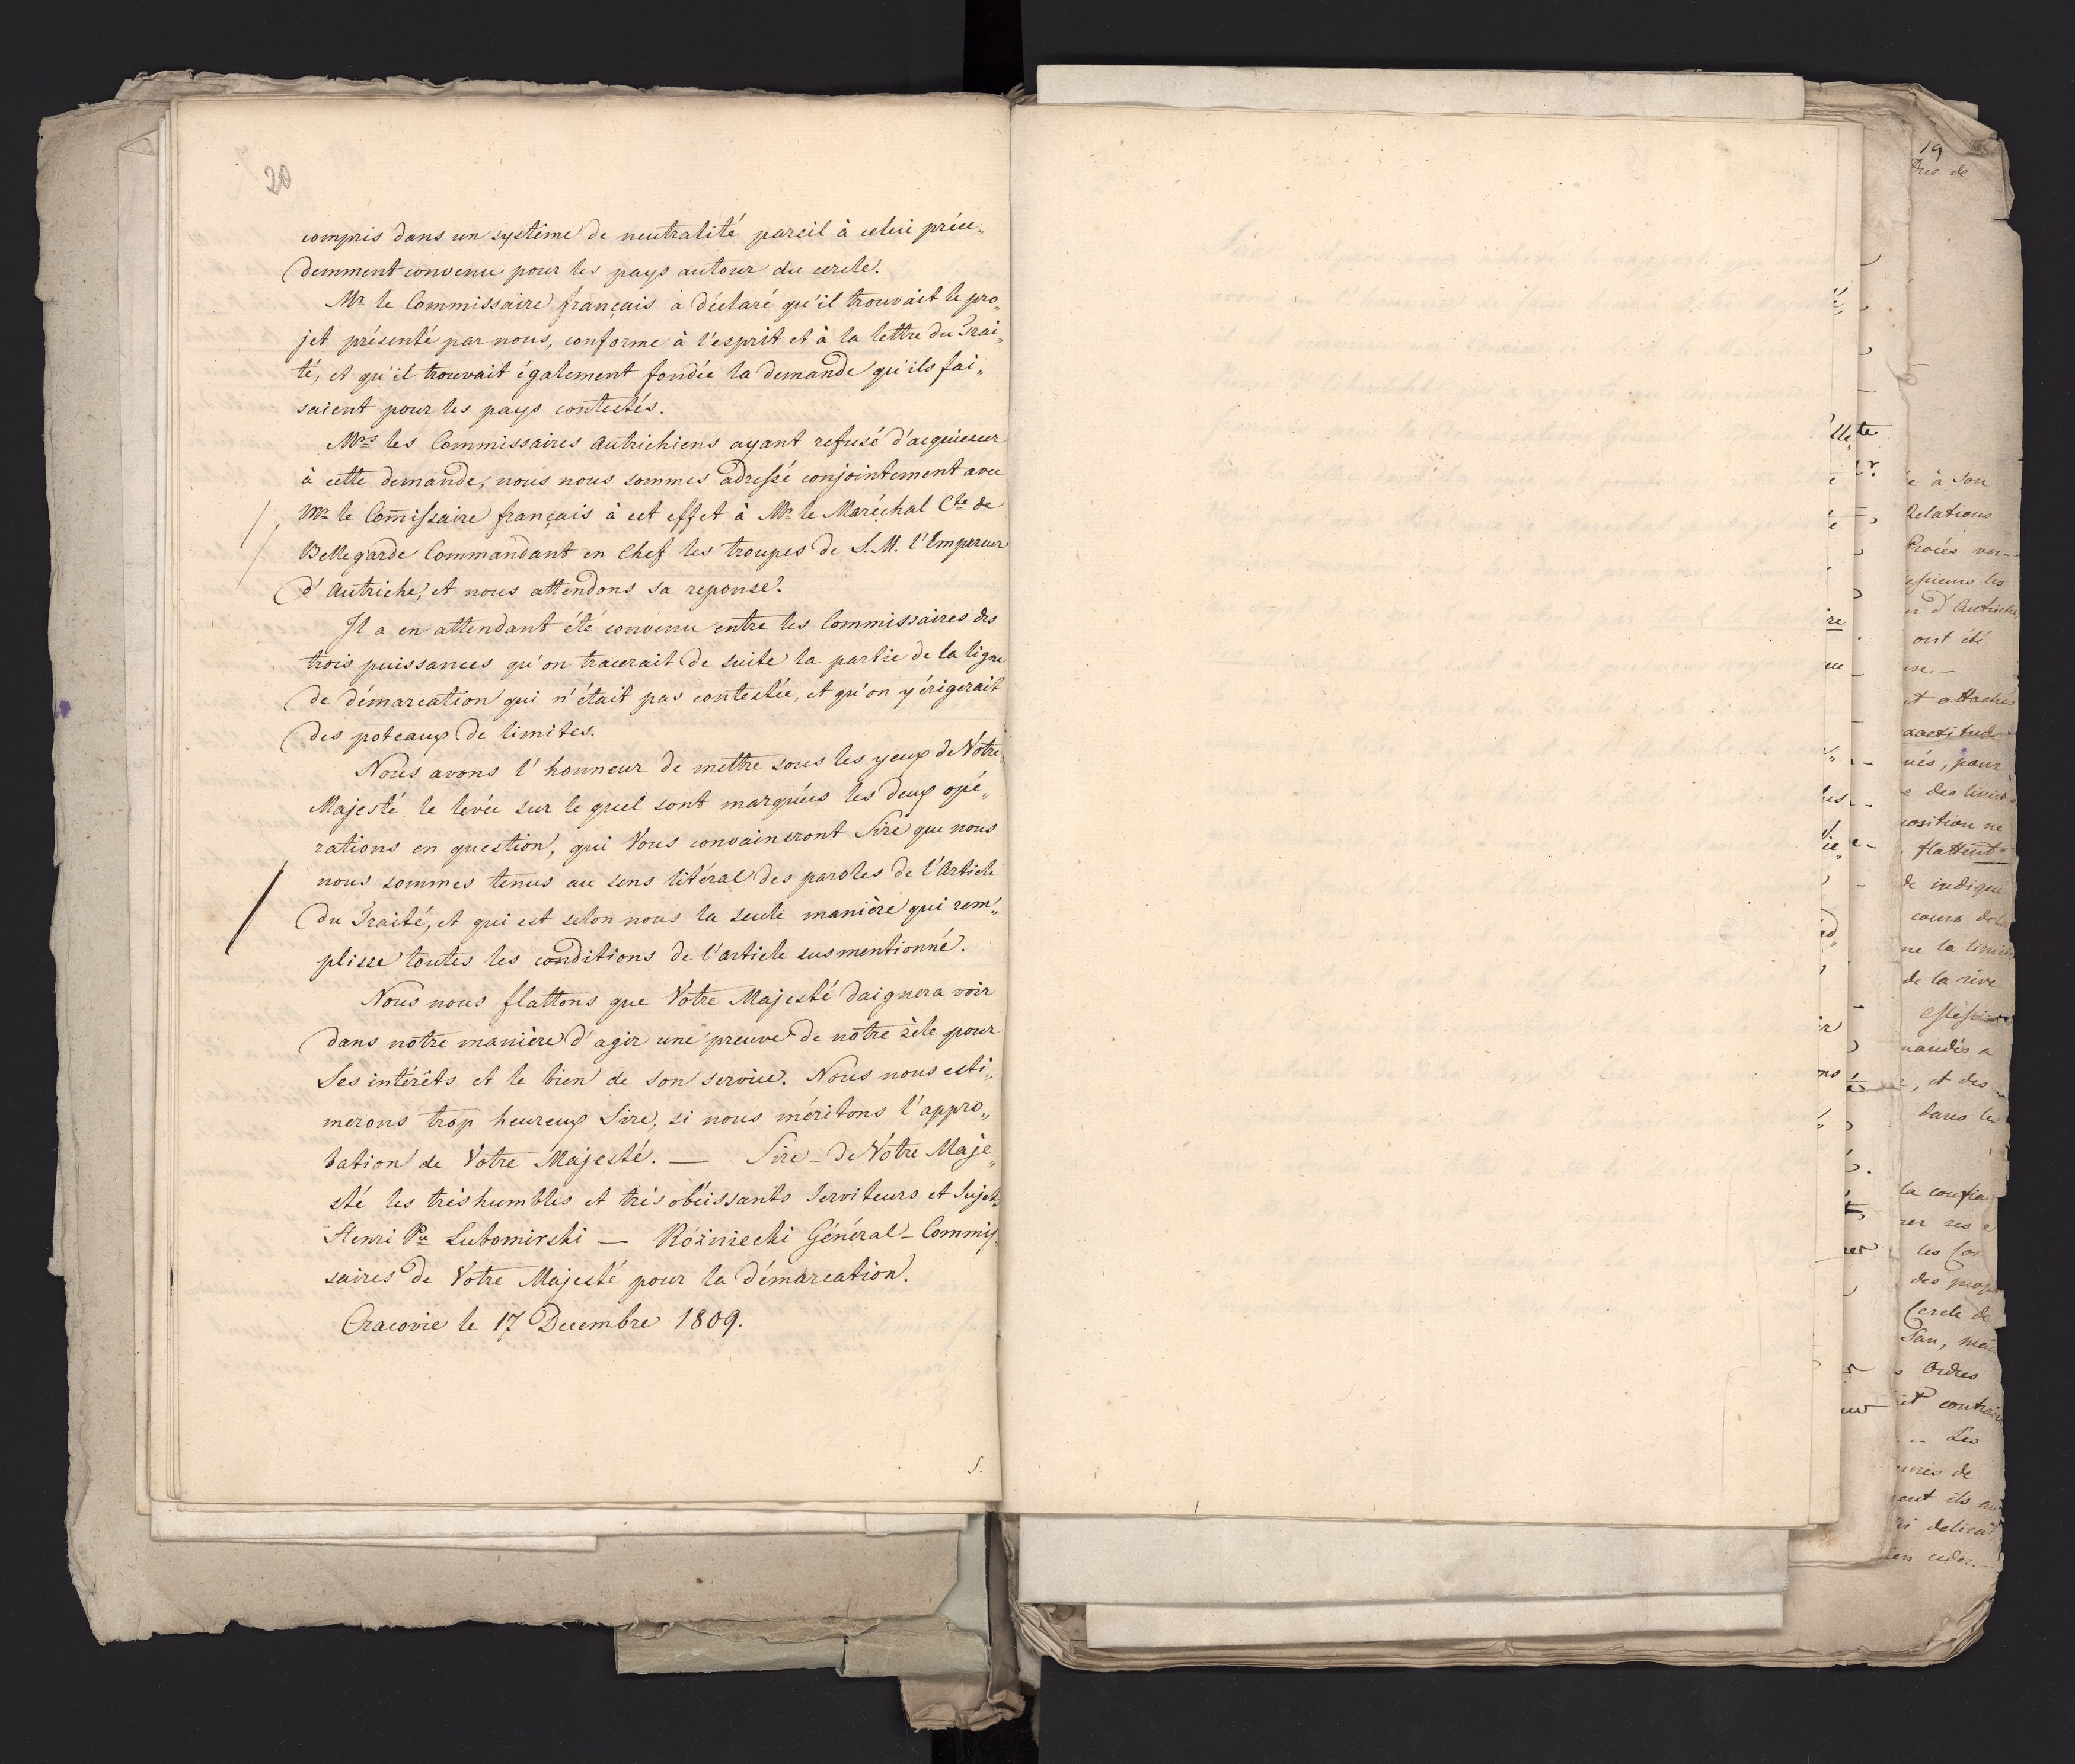 20
compris dans un système de neutralité pareil à celui préce„
demment convenu pour les pays autour du cercle.
Mr le Commissaire français a déclaré qu'il trouvait le pro„
jet présenté par nous, conforme à l'esprit et à la lettre du Trai„
té, et qu'il trouvait également fondée la demande qu'ils fai„
saient pour les pays contestés.
Mrs les Commissaires Autrichiens ayant refusé d'acquiescer
à cette demande, nous nous sommes adressé conjointement avec
Mr le Com̄issaire français à cet effet à Mr le Maréchal Cte de
Bellegarde Commandant en Chef les troupes de S. M. l'Empereur
d'Autriche, et nous attendons sa reponse.
Il a en attendant été convenu entre les Commissaires des
trois puissances qu'on tracerait de suite la partie de la ligne
de démarcation qui n'était pas contestée, et qu'on y érigerait
des poteaux de limites.
Nous avons l'honneur de mettre sous les yeux de Votre
Majesté le levée sur le quel sont marquées les deux opé„
rations en question, qui Vous convaincront Sire que nous
nous sommes tenus au sens litéral des paroles de l'Article
du Traité, et qui est selon nous la seule manière qui rem„
plisse toutes les conditions de l'article susmentionné.
Nous nous flattons que Votre Majesté daignera voir
dans notre manière d'agir une preuve de notre zèle pour
Ses intérêts et le bien de son service. Nous nous esti„
merons trop heureux Sire, si nous méritons l'appro„
bation de Votre Majesté. — Sire - de Votre Maje„
sté les très humbles et très obéissants Serviteurs et Sujets
Henri Pce Lubomirski — Rózniecki Général - Commis„
saires de Votre Majesté pour la démarcation.
Cracovie le 17 Decembre 1809.
S.
19
Duc de
à son
Relations
Procès ver-
les
d'Autriche
ont été
et attachés
pour
position ne
flattent
de indique
cours de la
de la rive
et des
dans les
la confia
les
des
Cercle de
San,
Ordres
Les
de